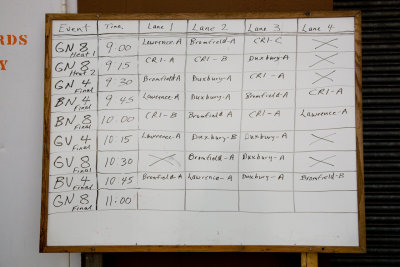 RDS
Y
Event Time Lane 1 Lane 2 Lane 3 Lane 4
GN 8 Heat 1 9.00 Lawrence-A Bromfield-A CRI-C X
GN 8 Heat 2 9.15 CRI-A CRI-B Duxbury-A X
GN 4 Final 9.30 Bromfield A Duxbury-A CRI-A X
BN 4 Final 9.45 Lawrence-A Duxbury-A Bromfield-A CRI-A
BN 8 Final 10.00 CRI-B Bromfield A CRI-A Lawrence-A
GV 4 Final 10.15 Lawrence-A Duxbury-B Duxbury-A X
GV 8 Final 10.30 X Bromfield-A Duxbury-A X
BV 4 Final 10.45 Bromfield-A Lawrence-A Duxbury-A Bromfield-B
GN 8 Final 11.00